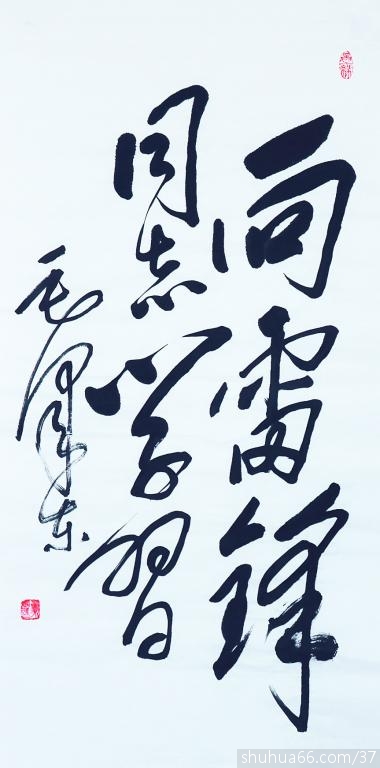 向雷锋
同志学习
毛泽东
shuhua66.com/37